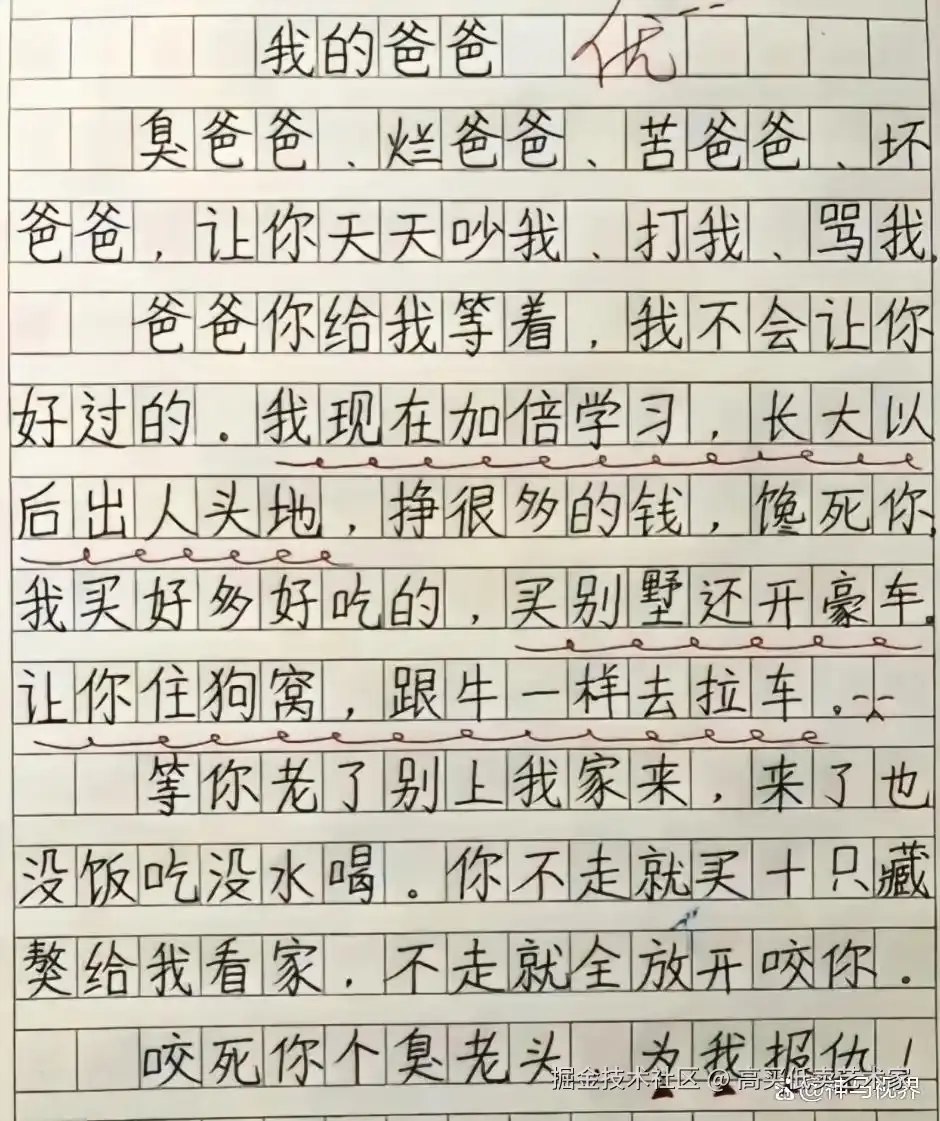 我的爸爸 优
臭爸爸、烂爸爸、苦爸爸、坏
爸爸，让你天天吵我、打我、骂我，
爸爸你给我等着，我不会让你
好过的。我现在加倍学习，长大以
后出人头地，挣很多的钱，馋死你，
我买好多好吃的，买别墅还开豪车。
让你住狗窝，跟牛一样去拉车。
等你老了别上我家来，来了也
没饭吃没水喝。你不走就买十只藏
獒给我看家，不走就全放开咬你。
咬死你个臭老头，为我报仇！
掘金技术社区 @ 高买低卖艺术家
@神马视界